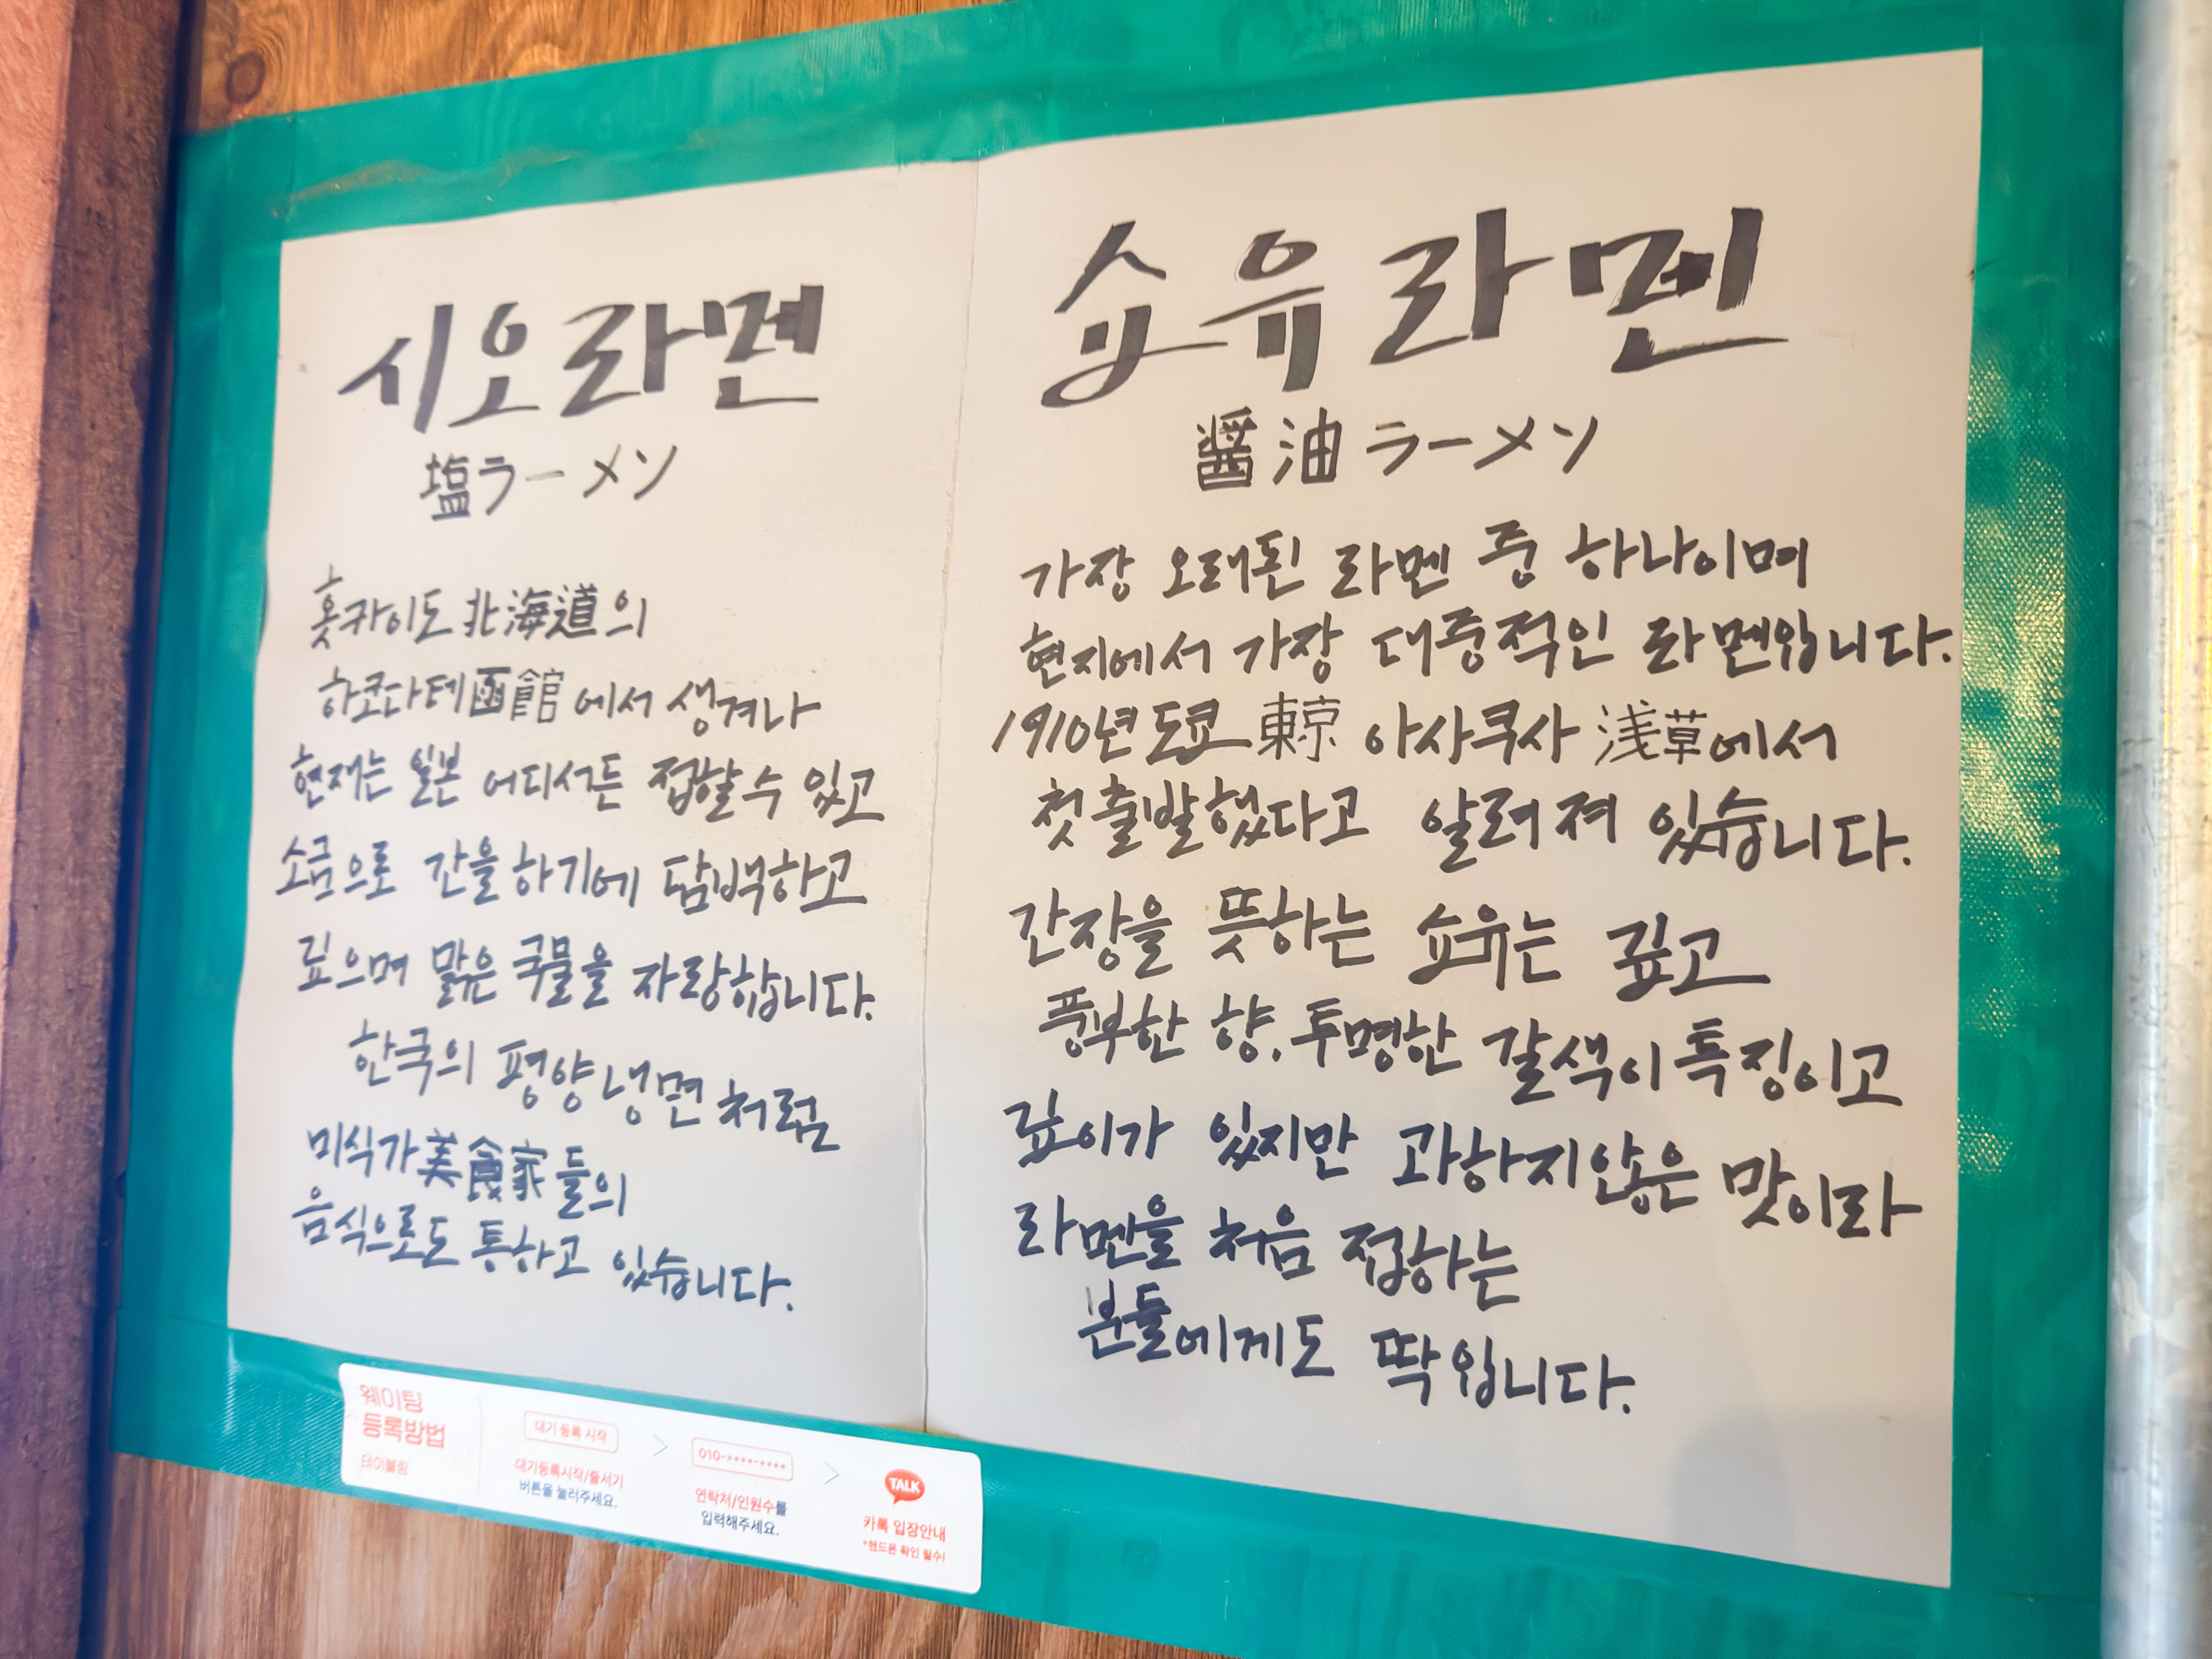 시오라멘
塩ラーメン
홋카이도 北海道의
하코다테 函館에서 생겨나
현재는 일본 어디서든 접할 수 있고
소금으로 간을 하기에 담백하고
깊으며 맑은 국물을 자랑합니다.
한국의 평양냉면처럼
미식가美食家들의
음식으로도 통하고 있습니다.
쇼유라멘
醤油ラーメン
가장 오래된 라멘 중 하나이며
현지에서 가장 대중적인 라멘입니다.
1910년 도쿄 東京 아사쿠사 浅草에서
첫출발했다고 알려져 있습니다.
간장을 뜻하는 쇼유는 깊고
풍부한 향, 투명한 갈색이 특징이고
깊이가 있지만 과하지않은 맛이라
라멘을 처음 접하는
분들에게도 딱입니다.
웨이팅
등록방법
테이블링
대기 등록 시작
대기등록시작/줄서기
버튼을 눌러주세요.
010-****-****
연락처/인원수를
입력해주세요.
TALK
카톡 입장안내
*핸드폰 확인 필수!